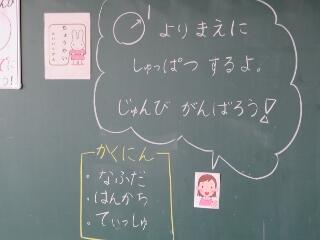 よりまえに
しゅっぱつ するよ。
じゅんび がんばろう!
かくにん
・なふだ
・はんかち
・てぃっしゅ